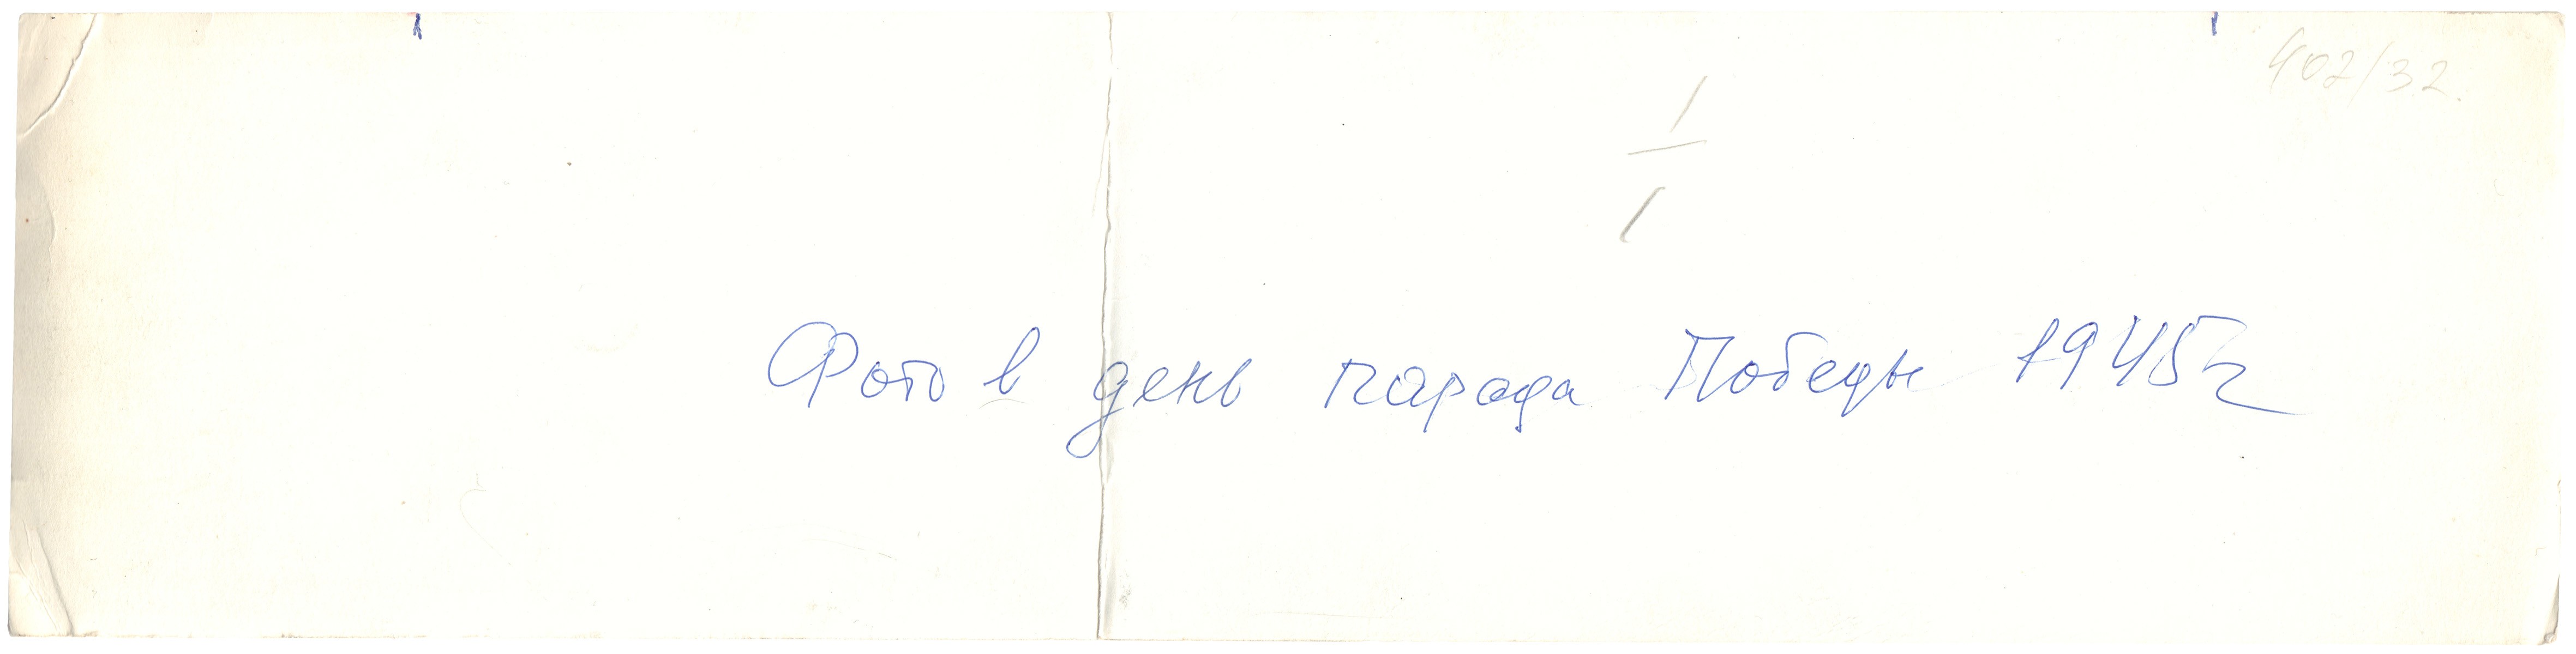 402/32.
1
1
Фото в день парада Победы 1945г